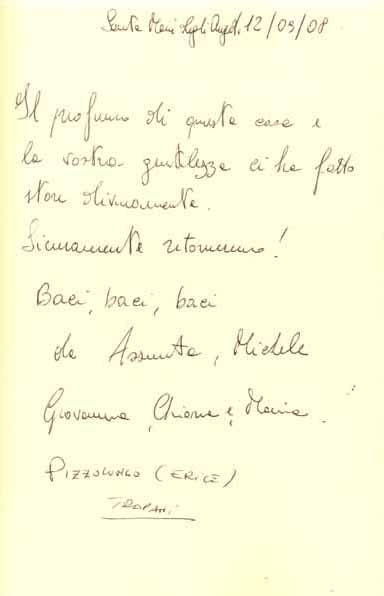 Santa Maria degli Angeli, 12/09/08
Il profumo di questa casa e
la vostra gentilezza ci ha fatto
stare divinamente.
Sicuramente ritorneremo!
Baci, baci, baci
da Assunta, Michele
Giovanna, Chiara e, Maria.
PIZZOLUNGO (ERICE)
TRAPANI